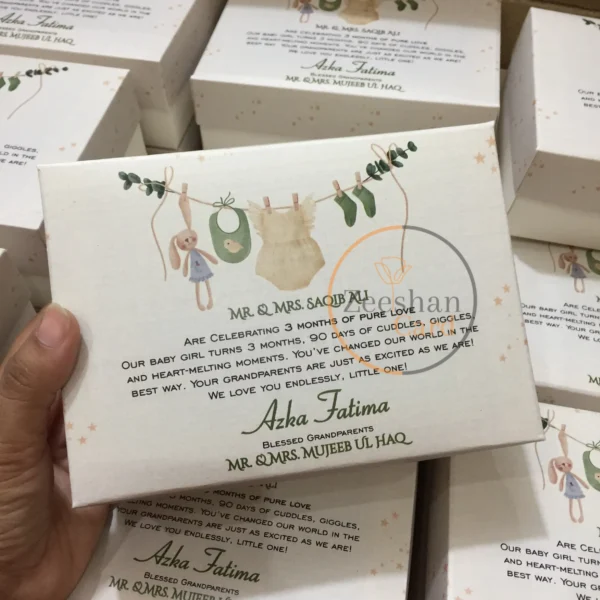 MR. & MRS. SAQIB ALI
ARE CELEBRATING 3 MONTHS OF PURE LOVE
BEST WAY. YOU'VE CHANGED OUR WORLD IN THE
WE LOVE YOU ENDLESSLY, LITTLE ONE!
Azka Fatima
BLESSED GRANDPARENTS
MR. & MRS. MUJEEB UL HAQ
Azka Fatima
MR. & MRS. MUJEEB UL HAQ
GIGGLES,
IN THE
MR. & MRS. SAQIB ALI
ARE CELEBRATING 3 MONTHS OF PURE LOVE
OUR BABY GIRL TURNS 3 MONTHS, 90 DAYS OF CUDDLES, GIGGLES,
AND HEART-MELTING MOMENTS. YOU'VE CHANGED OUR WORLD IN THE
BEST WAY. YOUR GRANDPARENTS ARE JUST AS EXCITED AS WE ARE!
WE LOVE YOU ENDLESSLY, LITTLE ONE!
Azka Fatima
BLESSED GRANDPARENTS
MR. & MRS. MUJEEB UL HAQ
Zeeshan
MONTHS OF PURE LOVE
MONTHS, 90 DAYS OF CUDDLES, GIGGLES,
MOMENTS. YOU'VE CHANGED OUR WORLD IN THE
YOUR GRANDPARENTS ARE JUST AS EXCITED AS WE ARE!
WE LOVE YOU ENDLESSLY, LITTLE ONE!
Azka Fatima
BLESSED GRANDPARENTS
MR. & MRS. MUJEEB
ARE CELEBRATING
OUR BABY GIRL TURNS 3 MONTHS
AND HEART-MELTING MOMENTS.
BEST WAY. YOUR
WE